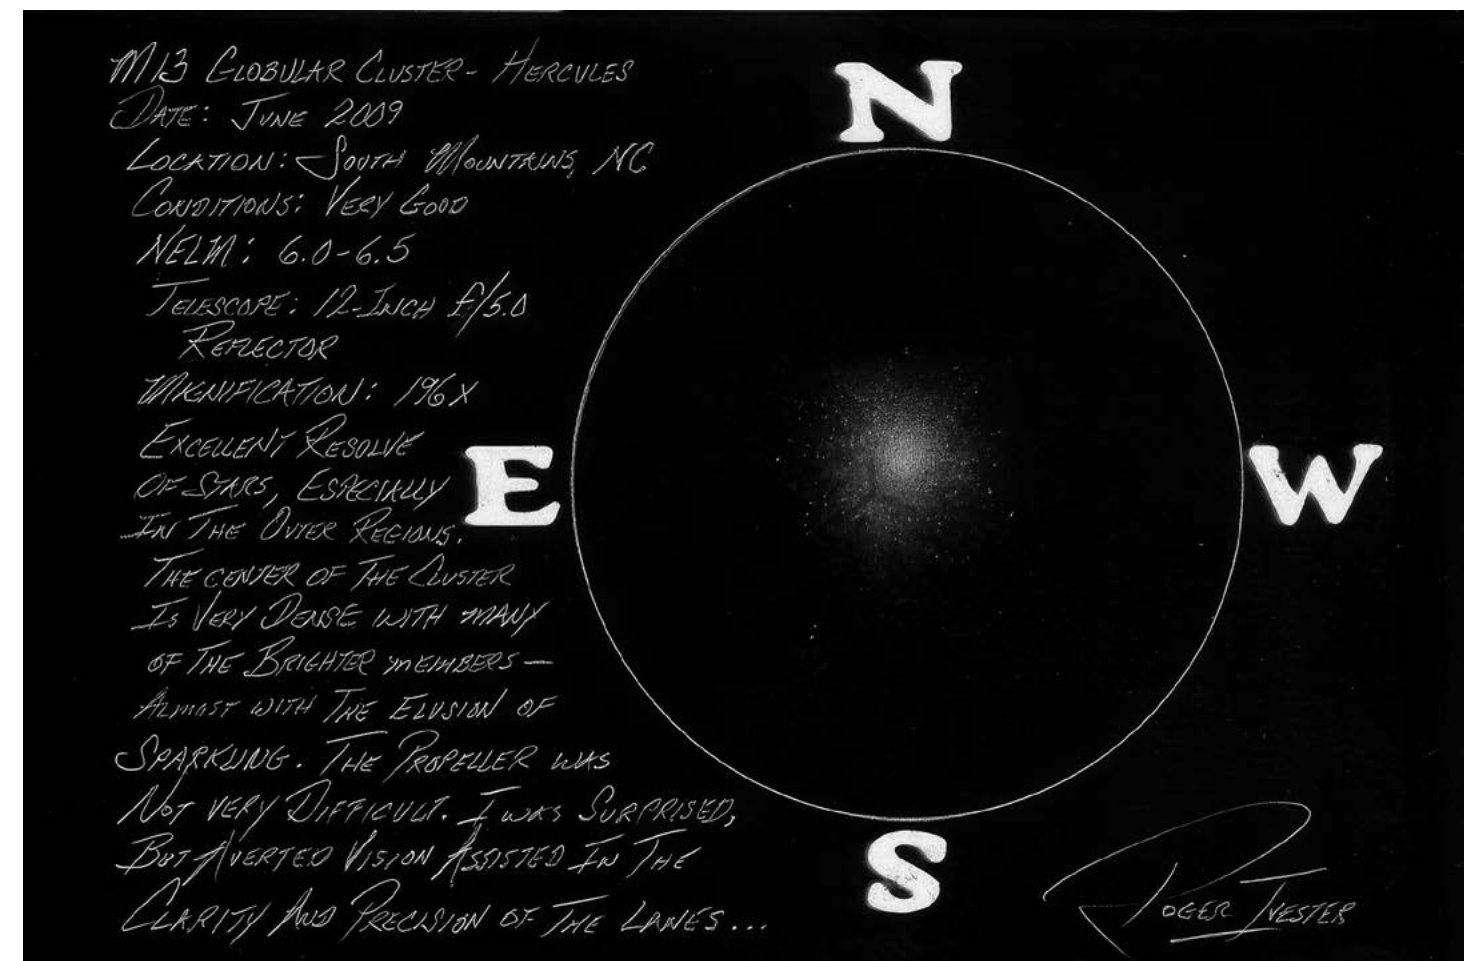 M13 GLOBULAR CLUSTER - HERCULES
DATE: JUNE 2009
LOCATION: SOUTH MOUNTAINS, NC
CONDITIONS: VERY GOOD
NELM: 6.0-6.5
TELESCOPE: 12-INCH f/5.0
REFLECTOR
MAGNIFICATION: 196X
EXCELLENT RESOLVE
OF STARS, ESPECIALLY
IN THE OUTER REGIONS.
THE CENTER OF THE CLUSTER
IS VERY DENSE WITH MANY
OF THE BRIGHTER MEMBERS —
ALMOST WITH THE ELUSION OF
SPARKLING. THE PROPELLER WAS
NOT VERY DIFFICULT. I WAS SURPRISED,
BUT AVERTED VISION ASSISTED IN THE
CLARITY AND PRECISION OF THE LANES...
N
E
W
S
ROGER IVESTER